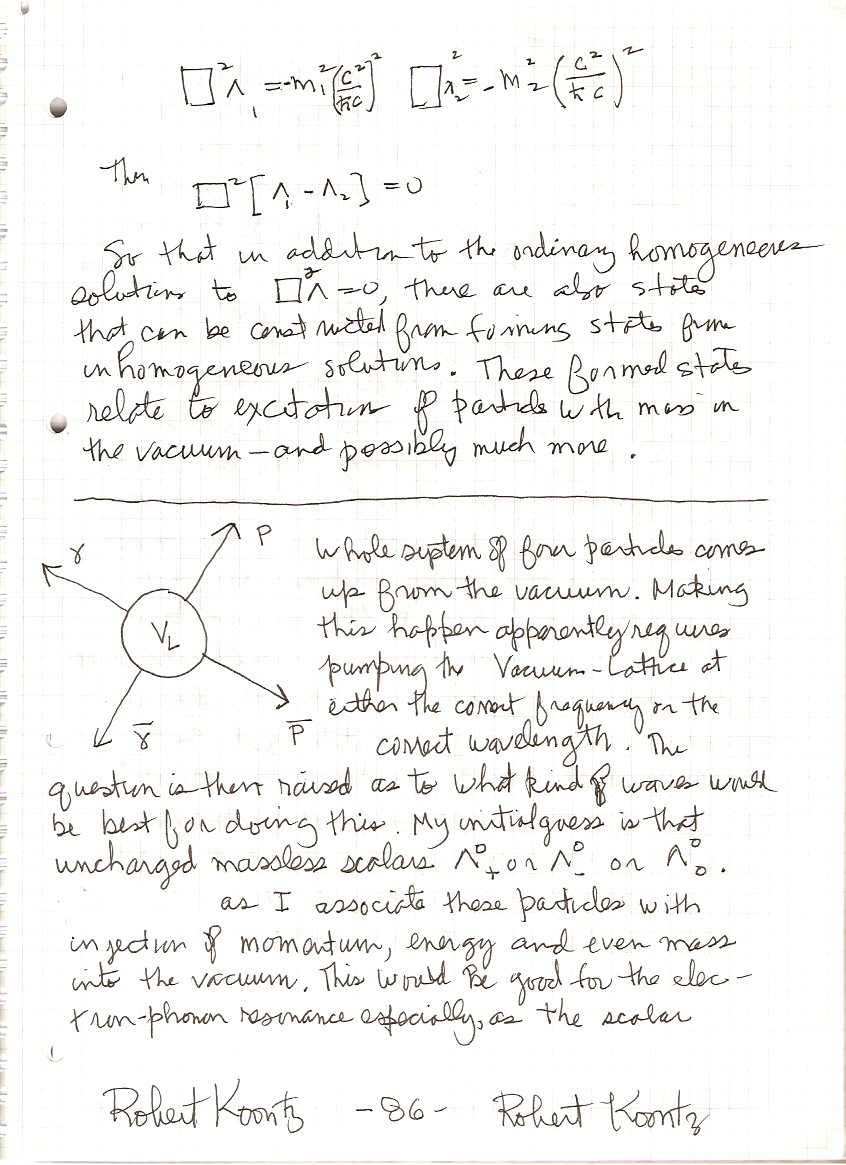 □²Λ₁ = -m₁²(c²/ħc)² □²λ₂ = -m₂²(c²/ħc)²
Then □²[Λ₁ - Λ₂] = 0
So that in addition to the ordinary homogeneous
solutions to □²Λ = 0, there are also states
that can be constructed from forming states from
inhomogeneous solutions. These formed states
relate to excitation of particles with mass in
the vacuum – and possibly much more.
γ P
V_L
γ̄ P̄
Whole system of four particles comes
up from the vacuum. Making
this happen apparently requires
pumping the Vacuum-Lattice at
either the correct frequency or the
correct wavelength. The
question is then raised as to what kind of waves would
be best for doing this. My initial guess is that
uncharged massless scalars Λ⁰₊ or Λ⁰₋ or Λ⁰₀.
as I associate these particles with
injection of momentum, energy and even mass
into the vacuum. This would be good for the elec-
tron-phonon resonance especially, as the scalar
Robert Koontz -86- Robert Koontz